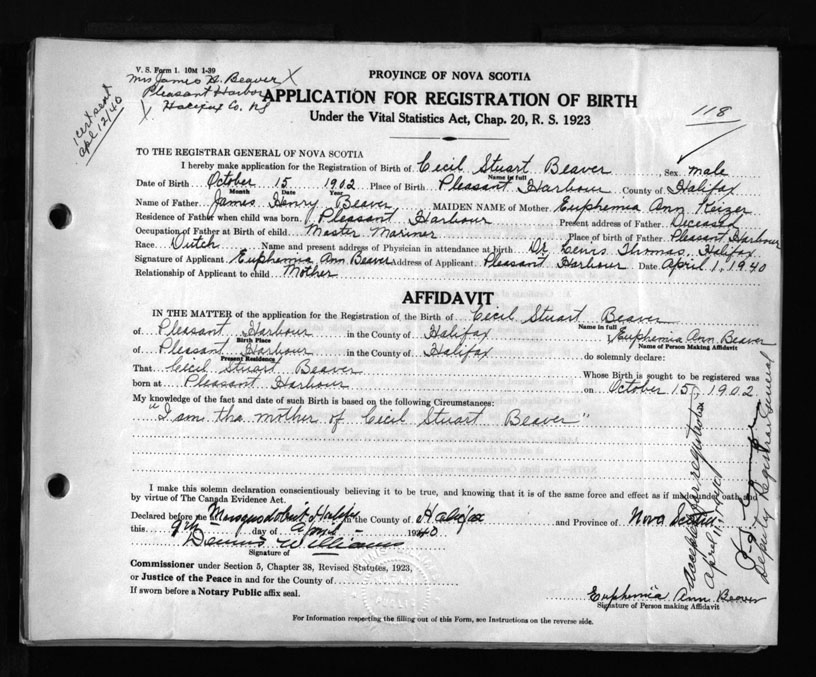 V. S. Form 1. 10M 1-39
Mrs James H. Beaver X
Pleasant Harbor
X Halifax Co. NS
1 cert sent
Apl 12/40
PROVINCE OF NOVA SCOTIA
APPLICATION FOR REGISTRATION OF BIRTH
Under the Vital Statistics Act, Chap. 20, R. S. 1923
118
TO THE REGISTRAR GENERAL OF NOVA SCOTIA
I hereby make application for the Registration of Birth of Cecil Stuart Beaver, Sex male
Name in full
Date of Birth October 15 1902 Place of Birth Pleasant Harbour County of Halifax
Month Date Year
Name of Father James Henry Beaver MAIDEN NAME of Mother Euphemia Ann Keizer
Residence of Father when child was born Pleasant Harbour Present address of Father Deceased
Occupation of Father at Birth of child Master Mariner Place of birth of Father Pleasant Harbour
Race Dutch Name and present address of Physician in attendance at birth Dr Lewis Thomas, Halifax
Signature of Applicant Euphemia Ann Beaver Address of Applicant Pleasant Harbour Date April 1, 1940
Relationship of Applicant to child Mother
AFFIDAVIT
IN THE MATTER of the application for the Registration of the Birth of Cecil Stuart Beaver
Name in full
of Pleasant Harbour in the County of Halifax Euphemia Ann Beaver
Birth Place Name of Person Making Affidavit
of Pleasant Harbour in the County of Halifax do solemnly declare:
Present Residence
That Cecil Stuart Beaver Whose Birth is sought to be registered was
born at Pleasant Harbour on October 15, 1902
My knowledge of the fact and date of such Birth is based on the following Circumstances:
"I am the mother of Cecil Stuart Beaver"
I make this solemn declaration conscientiously believing it to be true, and knowing that it is of the same force and effect as if made under oath and
by virtue of The Canada Evidence Act.
Declared before me Musquodoboit Halifax in the County of Halifax and Province of Nova Scotia
this 9th day of April 1940
Williams
Signature of
Commissioner under Section 5, Chapter 38, Revised Statutes, 1923,
or Justice of the Peace in and for the County of
If sworn before a Notary Public affix seal.
Euphemia Ann Beaver
Signature of Person making Affidavit
For Information respecting the filling out of this Form, see Instructions on the reverse side.
Accepted for registration
April 11, 1940
Deputy Registrar General